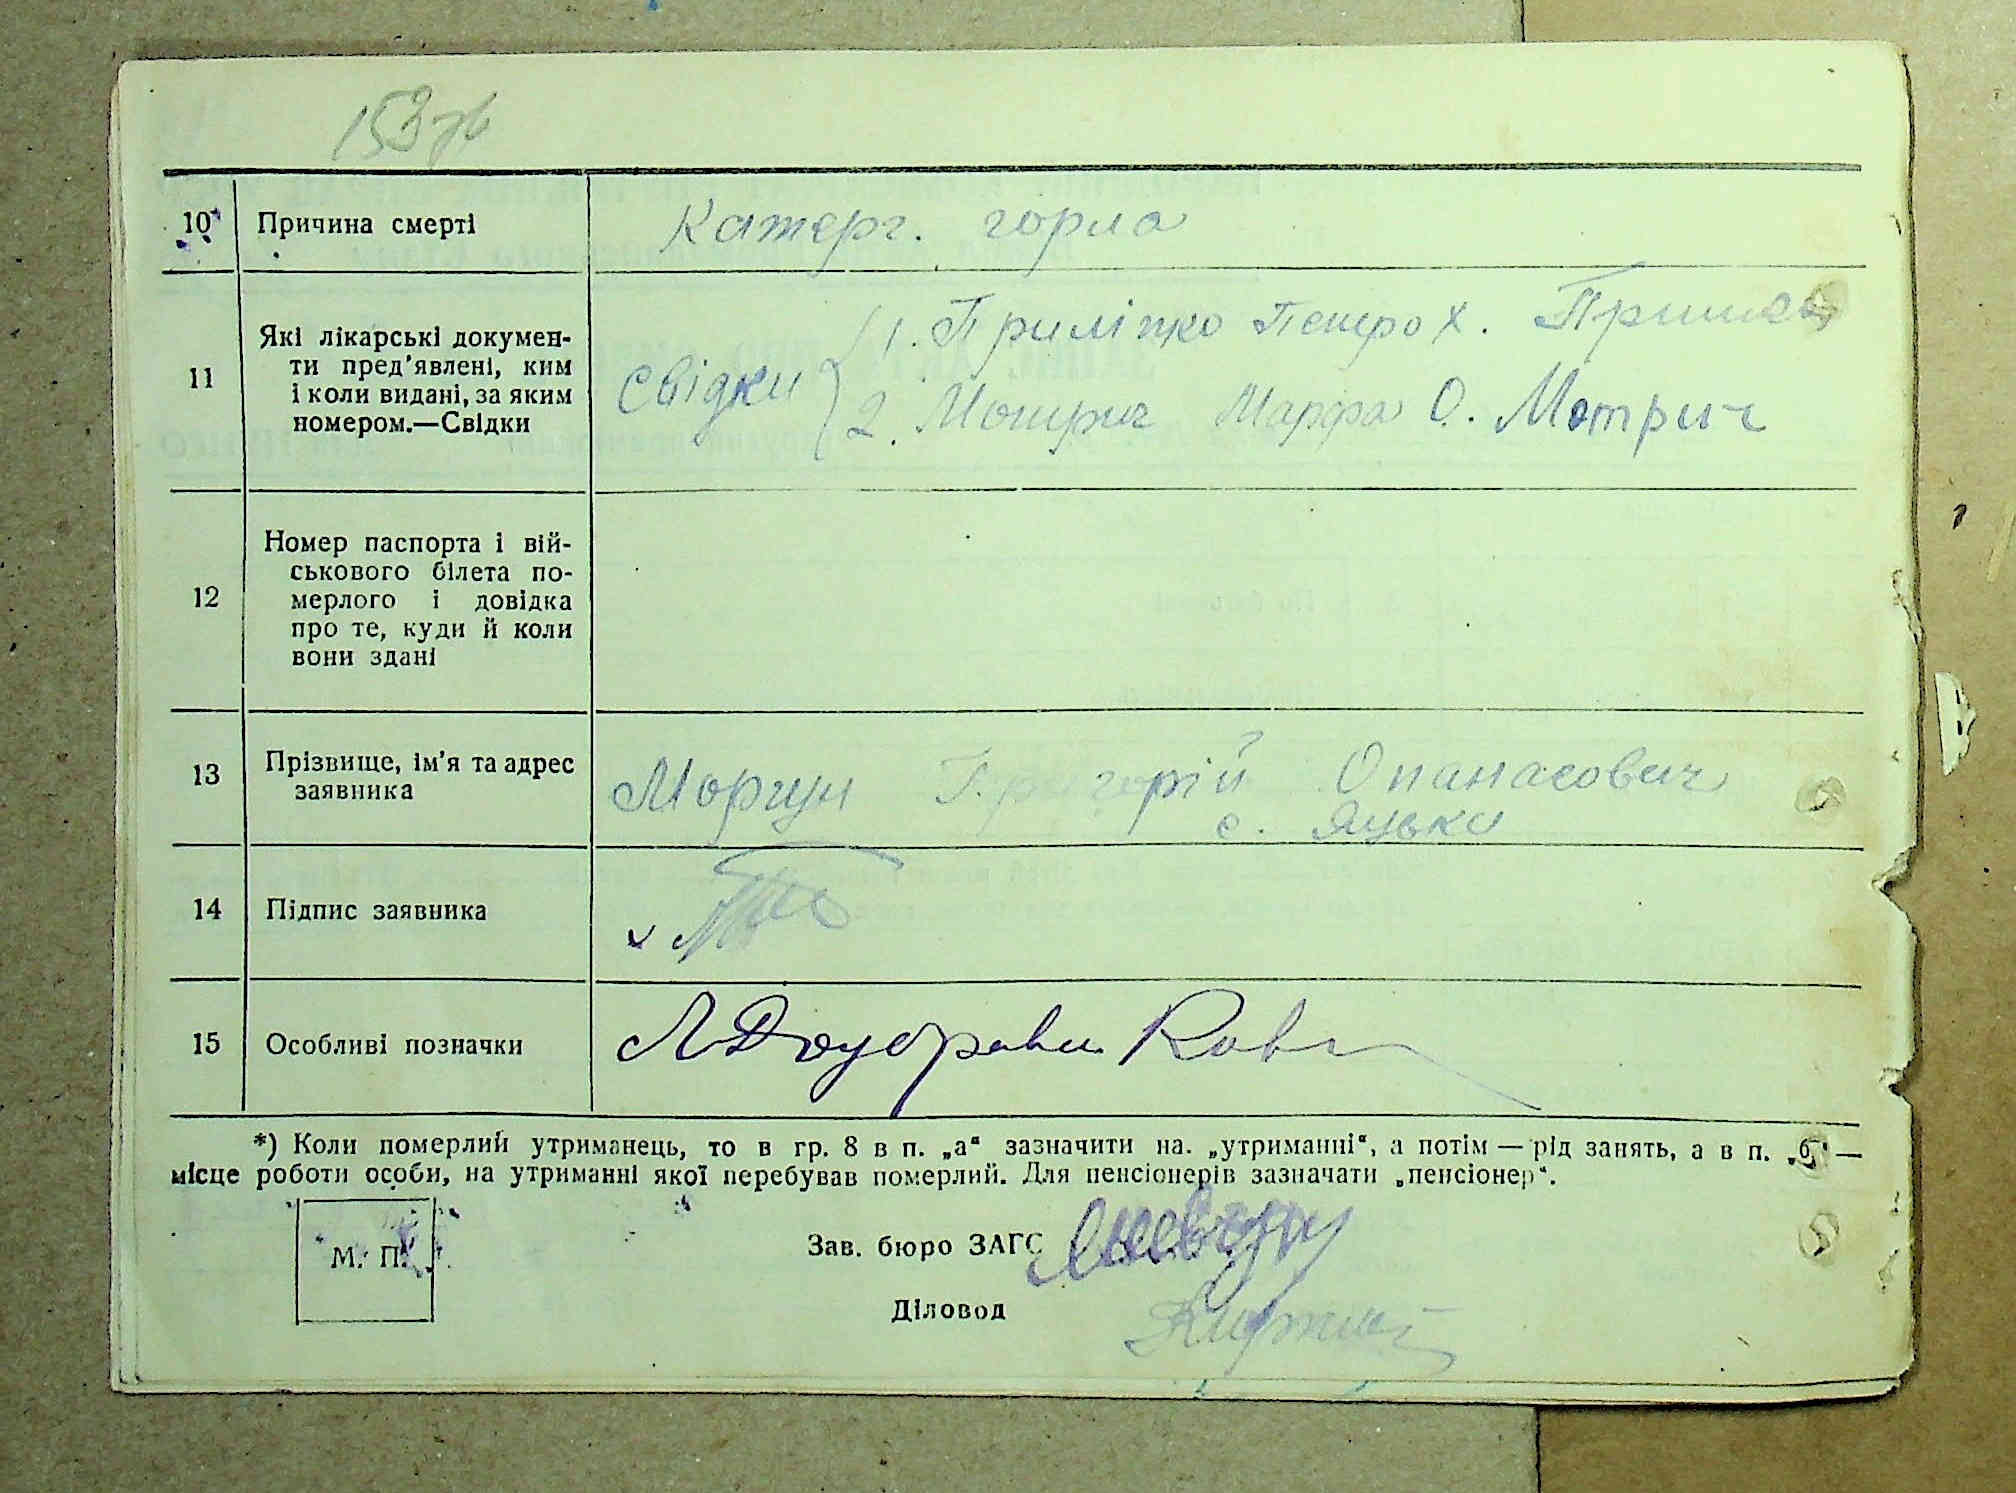 153 зв
10 Причина смерті Катерг. горла
11 Які лікарські докумен-
ти пред'явлені, ким
і коли видані, за яким
номером.—Свідки
Свідки 1. Приліпко Петро Х.
2. Мотрич Марфа О. Мотрич
12 Номер паспорта і вій-
ськового білета по-
мерлого і довідка
про те, куди й коли
вони здані
13 Прізвище, ім'я та адрес
заявника
Моргун Григорій Опанасович
с. Яцьки
14 Підпис заявника
15 Особливі позначки
*) Коли померлий утриманець, то в гр. 8 в п. „а" зазначити на. „утриманні", а потім — рід занять, а в п. „б" —
місце роботи особи, на утриманні якої перебував померлий. Для пенсіонерів зазначати „пенсіонер".
М. П.
Зав. бюро ЗАГС
Діловод